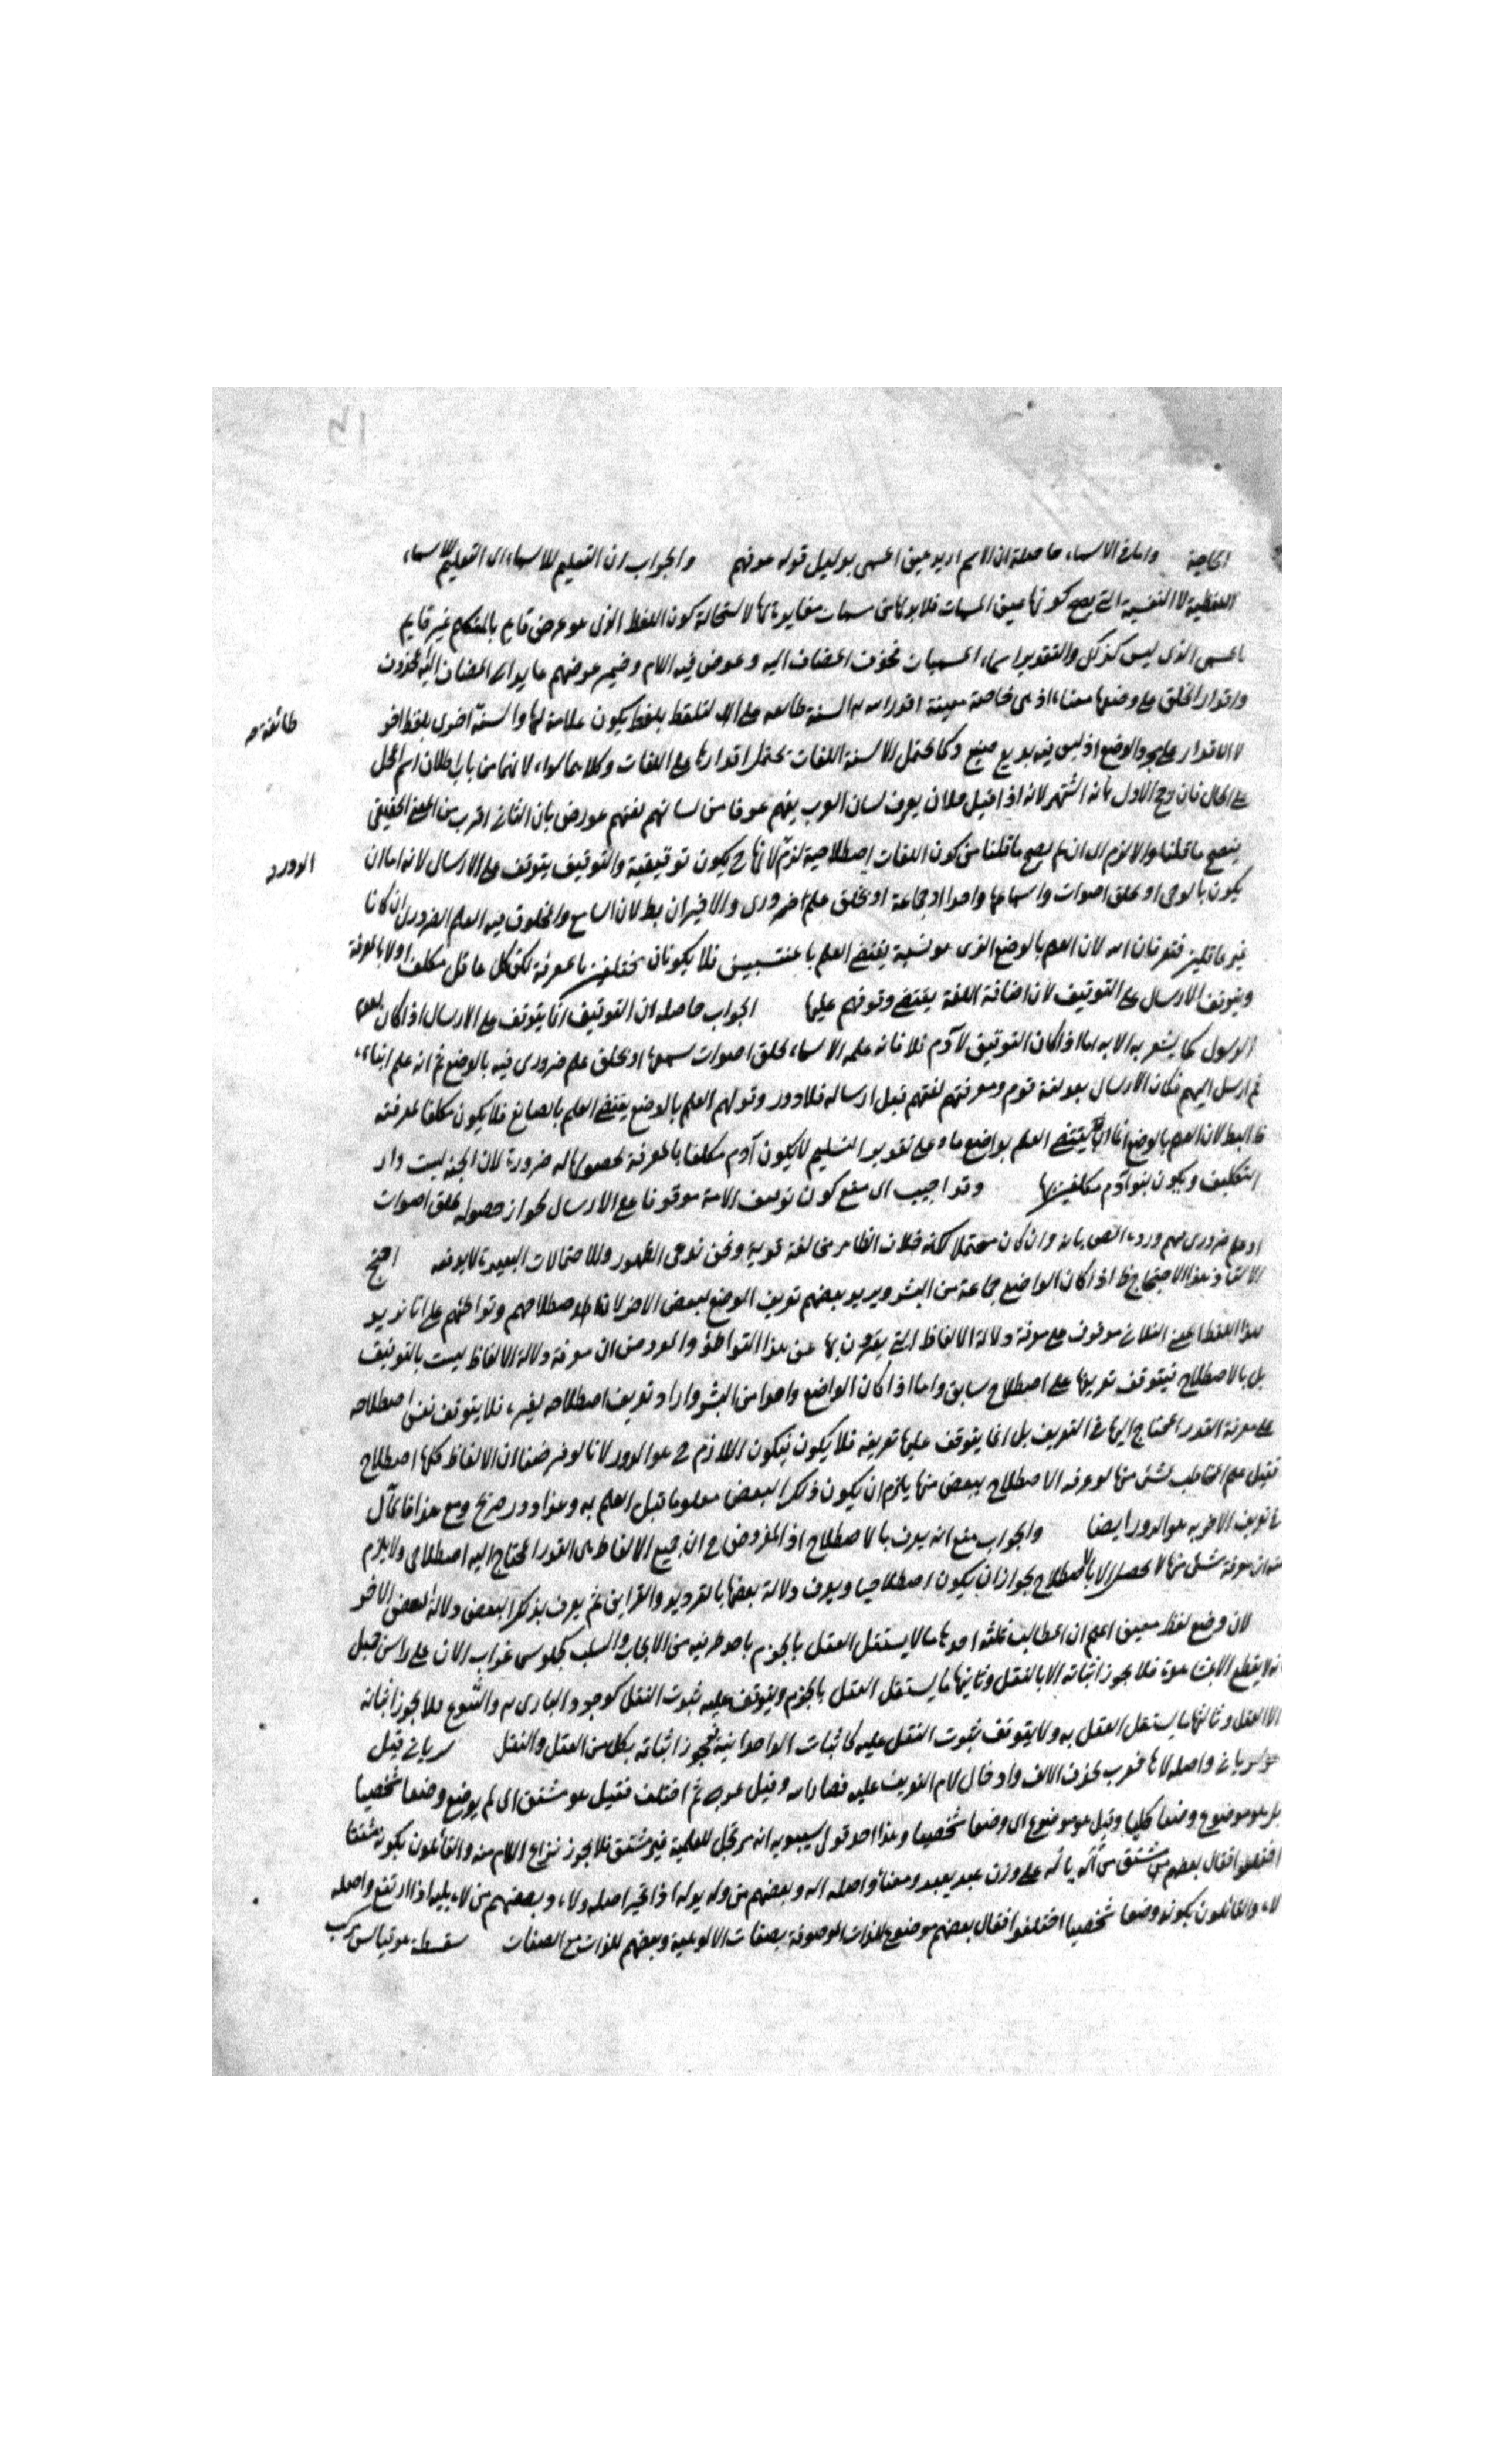 الحاجة واما في الاسماء حاصله ان الاسم اريد عين المسمى بدليل قوله عرضهم والجواب ان التعليم للاسماء اى التعليم للاسماء
اللفظية لا النفسية التي يصح كونها عين المسميات فلا بد لها من مسميات مغايرة لها لاستحالة كون اللفظ الذى هو عرض قايم بالمتكلم غير قايم
بالمسمى الذى ليس كذلك والتقدير اسماء المسميات فحذف المضاف اليه وعوض فيه اللام وضمير عرضهم عايد الى المضاف اليه المحذوف
واقدار الخلق على وضعها معناه اذ هى خاصة معينة اقدر الله السنة طائفة على التلفظ بلفظ يكون علامة لها والسنة اخرى بلفظ اخر
طائفة صح
لا الاقدار على الوضع اذ ليس فيه بديع صنيع وكما يحتمل الالسنة اللغات يحتمل اقدارها على اللغات وكلاهما سواء لانهما من باب اطلاق اسم المحل
على الحال فان رجح الاول بانه اشتهر لانه اذا قيل فلان يعرف لسان العرب يفهم عرفا من لسانهم لغتهم عورض بان الثانى اقرب من المعنى الحقيقى
فيصح ما قلنا والا لزم الدور اى ان لم يصح ما قلنا من كون اللغات اصطلاحية لزم لانها ح يكون توقيفية والتوقيف يتوقف على الارسال لانه اما ان
الدور صح
يكون بالوحى او بخلق اصوات واسماعها واحدا او جماعة او بخلق علم ضرورى والاخيران بطلان السامع والمخلوق فيه العلم الضرورى ان كانا
غير عاقلين فتعرفان الله لان العلم بالوضع الذى هو نسبة يقتضى العلم بالمنتسبين فلا يكونان مكلفين بالمعرفة لكن كل عاقل مكلف اولا بالمعرفة
ويتوقف الارسال على التوقيف لان اضافة اللغة يقتضى وقوفهم عليها الجواب حاصله ان التوقيف انما يتوقف على الارسال اذا كان
الرسول كما يشعر به الاية اما اذا كان التوقيف لآدم فلا فانه علمه الاسماء بخلق اصوات سمعها او بخلق علم ضرورى فيه بالوضع ثم انه علم ابناءه
ثم ارسل اليهم فكان الارسال بعد لغة قوم ومعرفتهم لغتهم قبل ارساله فلا دور وقولهم العلم بالوضع يقتضى العلم بالصانع فلا يكون مكلفا لمعرفته
ظ البطلان لان العلم بالوضع انما يقتضى العلم بواضع ما وعلى تقدير التسليم لا يكون آدم مكلفا بالمعرفة لحصولها له ضرورة لان الجنة ليست دار
التكليف ويكون بنو آدم مكلفين بها وقد اجيب اى منع كون توقيف الامة موقوفا على الارسال لجواز حصوله بخلق اصوات
او علم ضرورى فيهم ورده النص بانه وان كان محتملا لكنه خلاف الظاهر مخالفة قوية ونحن ندعى الظهور والاحتمالات البعيدة لا يدفعه احتج
الاستاذ هذا الاحتجاج ظ اذا كان الواضع جماعة من البشر ويريد بعضهم تعريف الوضع لبعض الاخر لان اصطلاحهم وتواطئهم على انا نريد
بهذا اللفظ المعنى الفلانى موقوف على معرفة دلالة الالفاظ التي يعبرون بها عن هذا التواطؤ والمفروض ان معرفة دلالة الالفاظ ليست بالتوقيف
بل بالاصطلاح فيتوقف تعريفها على اصطلاح سابق واما اذا كان الواضع واحدا من البشر واراد تعريف اصطلاحه لغيره فلا يتوقف نفس اصطلاحه
على معرفة القدر المحتاج اليها في التعريف بل انما يتوقف عليها تعريفه فلا يكون فيكون اللازم ح هو الدور لانا لو فرضنا ان الالفاظ كلها اصطلاح
فقبل علم المخاطب بشئ منها لو عرفه الاصطلاح ببعض منها يلزم ان يكون ذلك البعض معلوما قبل العلم به وهذا دور صريح ومع هذا فالمآل
في تعريف الاخر به هو الدور ايضا والجواب منع انه يعرف بالاصطلاح اذ المفروض ح ان جميع الالفاظ هى القدر المحتاج اليه اصطلاحى ولا يلزم
منه ان معرفة شئ منها لا يحصل الا بالاصطلاح لجواز ان يكون اصطلاحيا ويعرف دلالة بعضها بالترديد والقراين ثم يعرف بذلك البعض دلالة البعض الاخر
لان وضع لفظ معين اعلم ان المطالب ثلثة احدها ما لا يستقل العقل بالجزم باحد طرفيه من الايجاب والسلب كجلوس غراب الان على راس جبل
فلا يجوز اثباته الا بالنقل وثانيها ما يستقل العقل بالجزم ويتوقف عليه ثبوت النقل كوجود البارى والشرع فلا يجوز اثباته
الا العقل وثالثها ما يستقل العقل به ولا يتوقف ثبوت النقل عليه كاثبات الواحدانية فيجوز اثباته بكل من العقل والنقل سريانى قيل
هو سريانى واصله لاها فعرب بحذف الالف وادخال لام التعريف عليه فصار الله وقيل عربى ثم اختلف فقيل هو مشتق اى لم يوضع وضعا شخصيا
بل هو موضوع وضعا كليا وقيل هو موضوع اى وضعا شخصيا وهذا احد قول سيبويه انه مرتجل للعلمية غير مشتق فلا يجوز نزاع اللام منه والقائلون بكونه مشتقا
اختلفوا فقال بعضهم مشتق من أله يأله على وزن عبد يعبد ومعناه واصله اله وبعضهم من وله يوله اذا تحير اصله ولاه وبعضهم من لاه يليه اذا ارتفع واصله
لاه والقائلون بكونه وضعا شخصيا اختلفوا فقال بعضهم موضوع للذات الموصوفة بصفات الالوهية وبعضهم للذات مع الصفات سفسطة هو قياس مركب